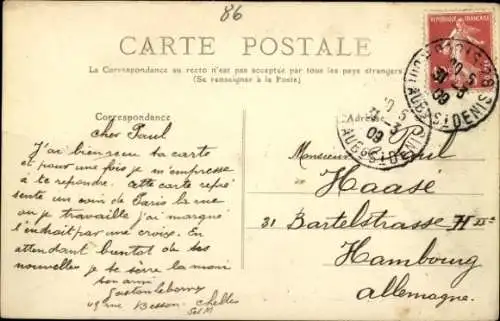 86
CARTE POSTALE
La Correspondance au recto n'est pas acceptée par tous les pays étrangers
(Se renseigner à la Poste)
REPUBLIQUE FRANÇAISE
Correspondance
Adresse
cher Paul
J'ai bien reçu ta carte
et pour une fois je m'empresse
à te répondre. cette carte repré
sente un coin de Paris la rue
ou je travaille j'ai marqué
l'endroit par une croix. En
attendant bientot de tes
nouvelles je te serre la main
ton ami
49 rue Besson Chelles
S et M
Monsieur Paul
Haasé
31 Bartelstrasse H
Hambourg
Allemagne.
AUB. S/ST DENIS
09